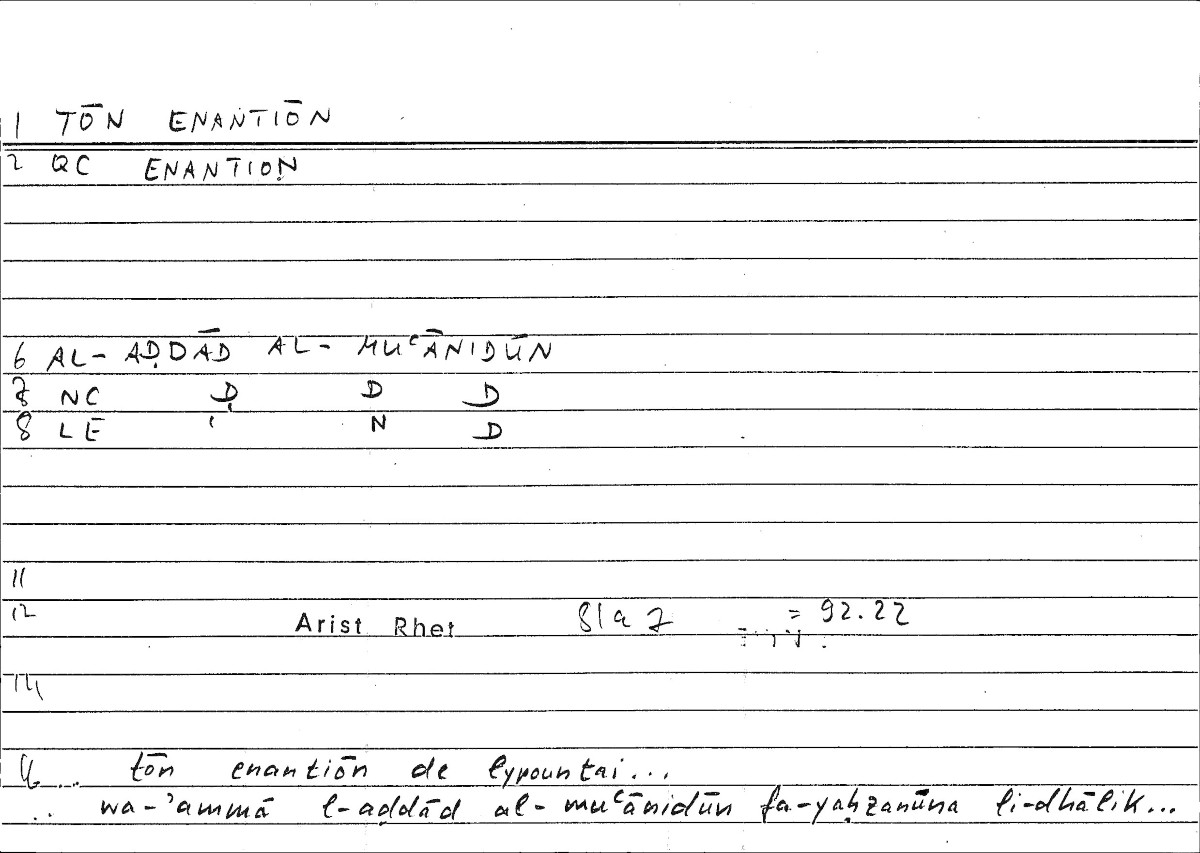 1 TŌN ENANTIŌN
2 QC ENANTION
6 AL-AḌDĀD AL-MUʿĀNIDŪN
7 NC D D D
8 LE N D
11
12 Arist Rhet 81a7 = 92.22
14
.. tōn enantiōn de lypountai...
.. wa-ʾammā l-aḍdād al-muʿānidūn fa-yaḥzanūna li-dhālik...